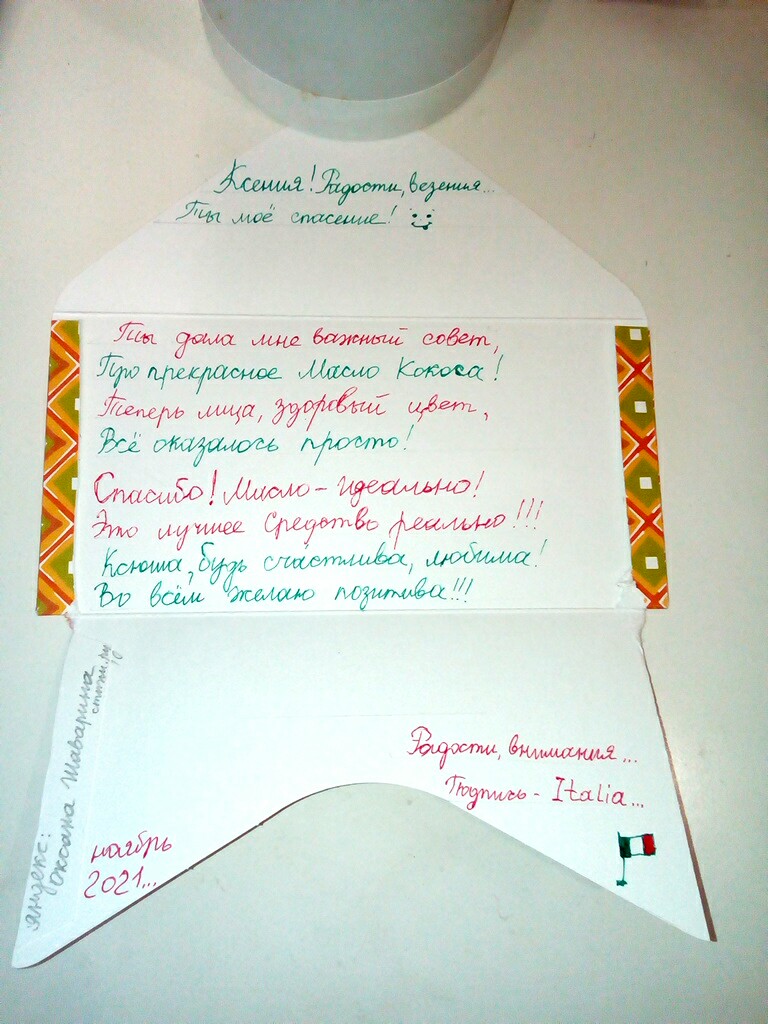 Ксения! Радости, везения...
Ты моё спасение!
Ты дала мне важный совет,
Про прекрасное Масло Кокоса!
Теперь лица, здоровый цвет,
Всё оказалось просто!
Спасибо! Масло - идеально!
Это лучшее Средство реально!!!
Ксюша, будь счастлива, любима!
Во всём желаю позитива!!!
Радости, внимания...
Подпись - Italia...
ноябрь
2021...
яндекс:
Оксана Шаварина
стихи.ру